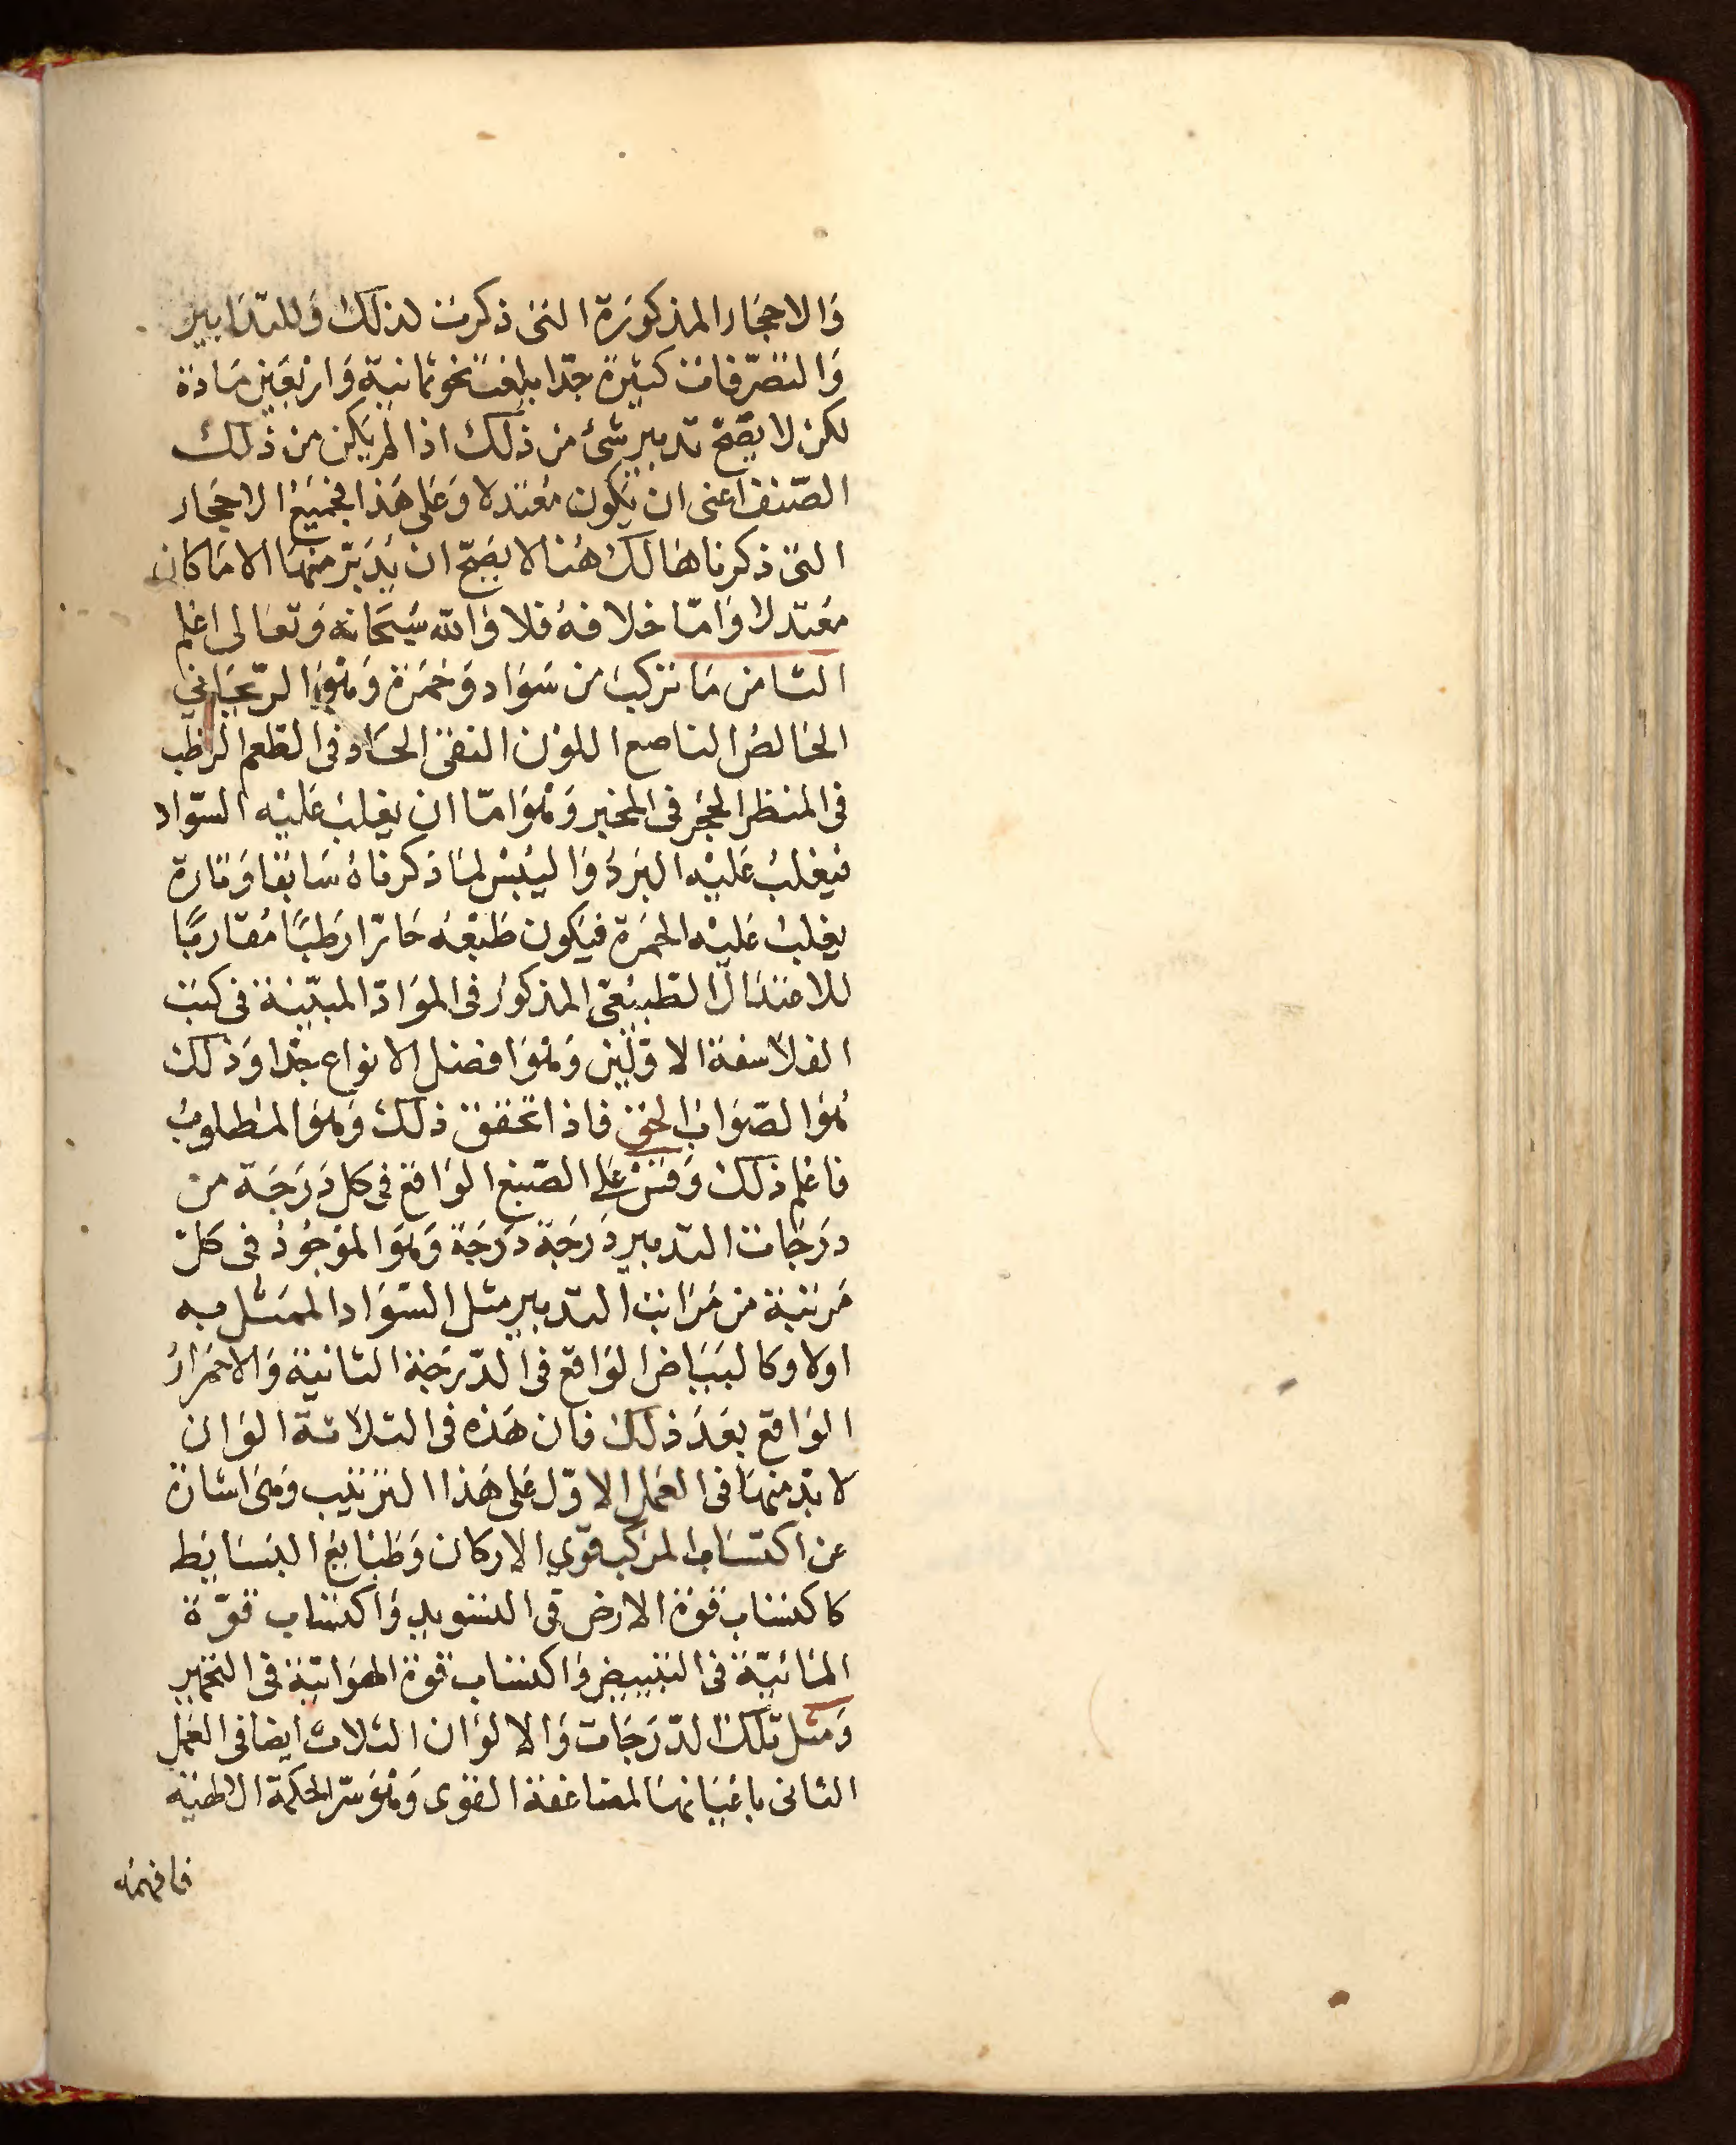 وَالاحجَار المذكورَة التى ذكرت لذلك وَللتدَابير
وَالتصّرفات كثيرة جدّا بلغت نحو ثمانية وَاربعَين مَادة
لكن لا يصّح تدبير شئ من ذلك اذا لم يكن من ذلك
الصّنف اعنى ان يكون معتدلا وَعَلى هَذا فجميَع الاحجَار
التى ذكرناها لك هُنا لا يصَحّ ان يُدَبّر منهَا الا مَا كان
معُتدلا وَامّا خلافهُ فلا وَالله سُبحَانه وَتعَالى اعْلم
الثامن مَا تركبَ من سَوَاد وَحُمرَة وَهُوَ الرّيحَانى
الخالصُ الناصع اللوْن النقىّ الحَادّ فى الطعم الرّطب
فى المنظر الحجَر فى المخبر وَهُوَ امّا ان يغلبَ عَليْه السّوَاد
فيَغلبُ عَليْه البَردُ وَاليُبسُ لمَا ذكرناهُ سَابقا وَتارة
يغلبُ عَليْه الحمرَة فيَكون طَبْعهُ حَارّا رَطبًا مُقاربًا
للاعتدَال الطبيَعىّ المذكوُر فى الموَادّ المبيّنة فى كتب
الفلاسفة الاوّلين وَهُوَ افضل الانواع جدّا وَذلك
هُوَ الصّوَاب الحق فاذا تحققَ ذلك وَهُوَ المطلوبُ
فاعْلم ذلك وَقسْ عَلى الصّبغ الوَاقع فى كل دَرَجَة من
درَجَات التدبير دَرَجَة دَرَجَة وَهُوَ الموْجُودُ فى كلّ
مَرتبة من مَرَاتب التدبير مثل السّوَاد الممَثل به
اولا وكالبيَاض الوَاقع فى الدّرجَة الثانية وَالاحمرَارُ
الوَاقع بعَدَ ذلك فان هَذه فى الثلاثة الوَان
لا بدّ منهَا فى العَمل الاوّل عَلى هَذا الترتيب وَهىَ اشارة
عن اكتسَاب المركب قوّى الاركان وَطبَايعَ البسَايَط
كاكتساب قوّة الارض فى التسويد وَاكتساب قوّة
المائيّة فى التبييض وَاكتساب قوة الهوَائيّة فى التحمير
وَمثل تلك الدّرَجَات وَالالوَان الثلاث ايضا فى العَمل
الثانى باعْيَانهَا لمضاعَفة القوى وَهُوَ سرّ الحكمَة الالهَيّة
فافهمهُ